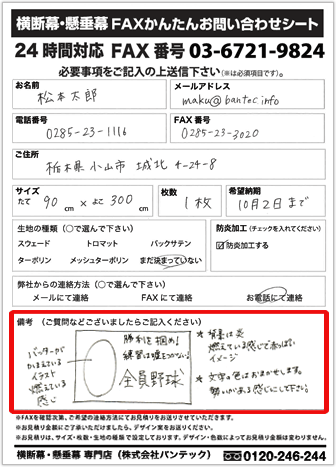 横断幕・懸垂幕 FAXかんたんお問い合わせシート
24時間対応 FAX番号 03-6721-9824
必要事項をご記入の上送信下さい(※は必須項目です)。
お名前
松本太郎
メールアドレス
maku@bantec.info
電話番号
0285-23-1116
FAX番号
0285-23-3020
ご住所
栃木県小山市 城北 4-24-8
サイズ
たて 90 cm × よこ 300 cm
枚数
1枚
希望納期
10月2日まで
生地の種類 (○で選んで下さい)
スウェード トロマット バックサテン
ターポリン メッシュターポリン まだ決まっていない
防炎加工 (チェックを入れてください)
防炎加工する
弊社からの連絡方法 (○で選んで下さい)
メールにて連絡 FAXにて連絡 お電話にて連絡
備考 (ご質問などございましたらご記入ください)
バッターが
かまえている
イラスト
燃えている
感じ
勝利を掴め!
練習は嘘をつかない
全員野球
★ 背景は炎
燃えている感じで赤っぽい
イメージ
★ 文字の色はおまかせします。
勢いがある感じにして下さい。
※FAXを確認次第、ご希望の連絡方法にてお見積りをお送りさせていただきます。
※お見積り金額にご了承いただけましたら、デザイン案をお送りください。
※お見積りは、サイズ・枚数・生地の種類で設定しております。デザイン・色数によってお見積り金額は変わりません。
横断幕・懸垂幕 専門店 (株式会社バンテック) 0120-246-244